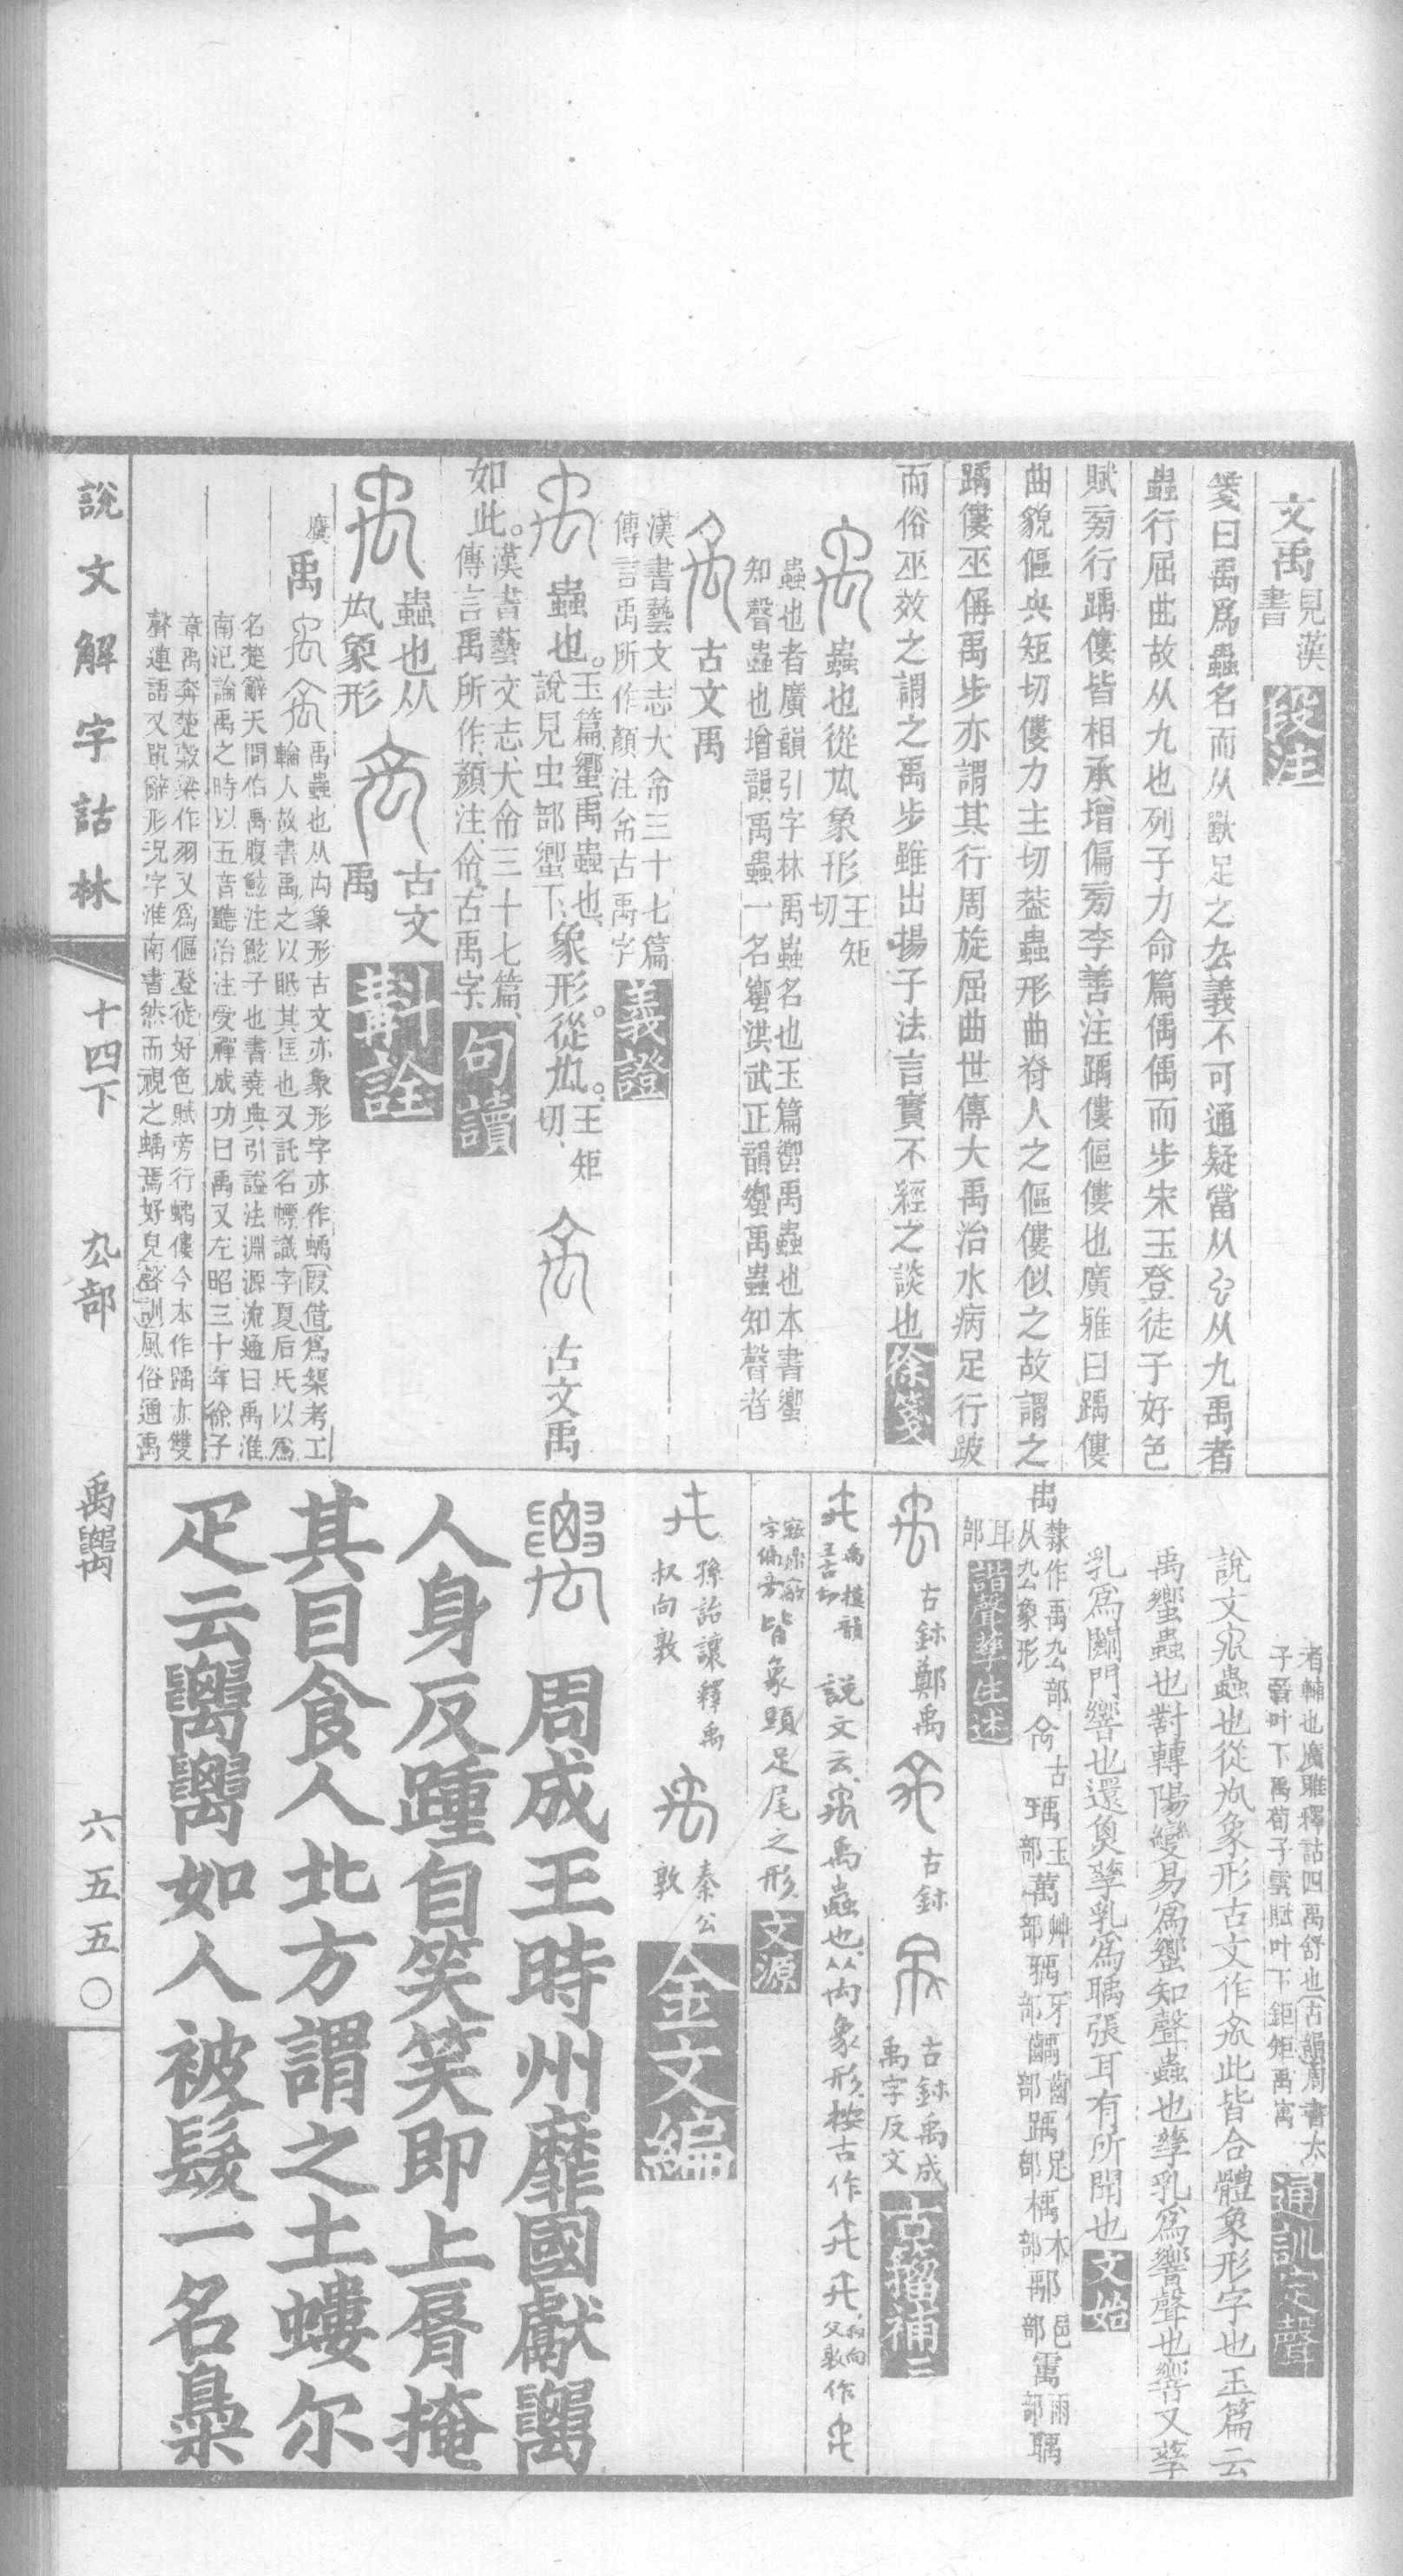 文禹見漢書段注
箋曰禹爲蟲名而从獸足之厹義不可通疑當从从九禹者
蟲行屈曲故从九也列子力命篇偊偊而步宋玉登徒子好色
賦旁行踽僂皆相承增偏旁李善注踽僂傴僂也廣雅曰踽僂
曲貌傴與矩切僂力主切葢蟲形曲脊人之傴僂似之故謂之
踽僂巫偁禹步亦謂其行周旋屈曲世傳大禹治水病足行跛
而俗巫效之謂之禹步雖出揚子法言實不經之談也徐箋
蟲也從厹象形王矩切
蟲也者廣韻引字林禹蟲名也玉篇蠁禹蟲也本書蠁
知聲蟲也增韻禹蟲一名蠁洪武正韻蠁禹蟲知聲者
古文禹
漢書藝文志大命三十七篇
傳言禹所作顏注古禹字義證
蟲也。玉篇蠁禹蟲也說見虫部蠁下象形。從厹。王矩切
古文禹
如此。漢書藝文志大三十七篇
傳言禹所作顏注古禹字句讀
蟲也从厹象形
古文禹斠詮
禹禹蟲也从禸象形古文亦象形字亦作蝺叚借爲榘考工
輪人故書禹之以眡其匡也又託名幖識字夏后氏以爲
名楚辭天問伯禹腹鮌注鮌子也書堯典引謚法淵源流通曰禹淮
南氾論禹之時以五音聽治注受禪成功曰禹又左昭三十年徐子
章禹奔楚穀梁作羽又爲傴登徒好色賦旁行蝺僂今本作踽亦雙
聲連語又單辭形況字淮南書然而視之蝺焉好皃聲訓風俗通禹
者輔也廣雅釋詁四禹舒也古韻周書太
子晉叶下禹荀子雲賦叶下鉅矩禹寓通訓定聲
說文蟲也從厹象形古文作此皆合體象形字也玉篇云
禹蠁蟲也對轉陽變易爲蠁知聲蟲也孳乳爲響聲也響又孳
乳爲闀門響也還魚孳乳爲聥張耳有所聞也文始
禹隸作禹厹部从厹象形古瑀玉部萬艸部䮏牙部齲齒部踽足部楀木部鄅邑部䨞雨部聥
耳部諧聲孳生述
古鉥鄭禹古鉥古鉥禹成禹字反文古籀補二
禹模韻王古切說文云禹蟲也从禸象形按古作叔向父敦作
字偏旁皆象頭足尾之形文源
孫詒讓釋禹叔向敦秦公敦金文編
周成王時州靡國獻
人身反踵自笑笑即上脣掩
其目食人北方謂之土螻尔
疋云如人被髮一名梟
說文解字詁林十四下厹部禹六五五〇